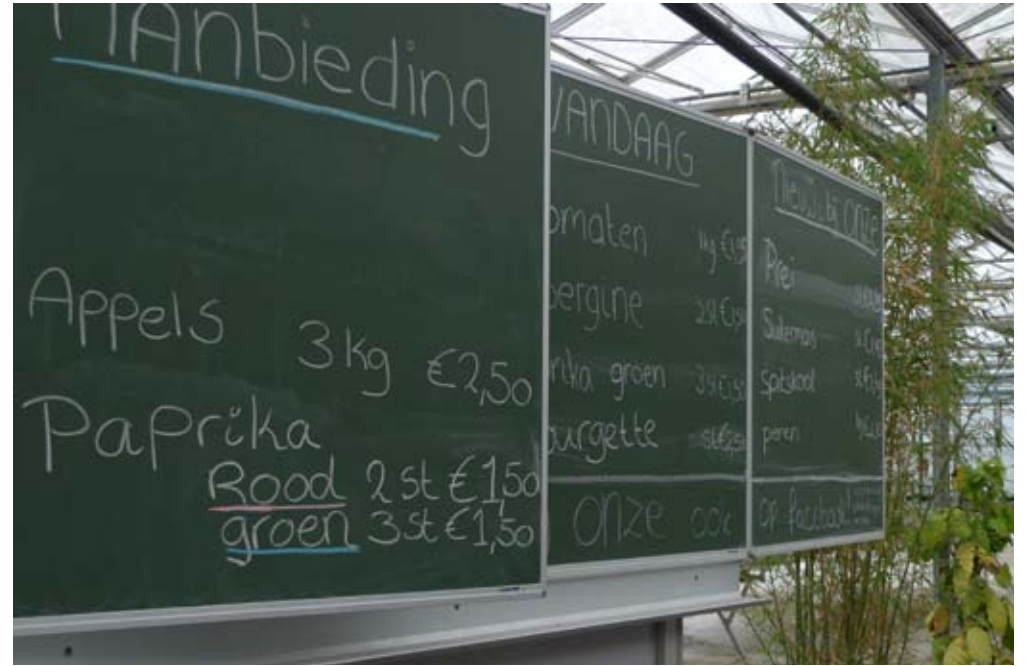 Aanbieding
Appels 3 kg €2,50
Paprika
Rood 2 st €1,50
groen 3 st €1,50
VANDAAG
omaten 1kg
ergine 2 st €1,50
rika groen 3 st €1,50
ourgette st
onze ook
Nieuw bij onze
Prei
Suikermais
Spitskool
peren
op facebook